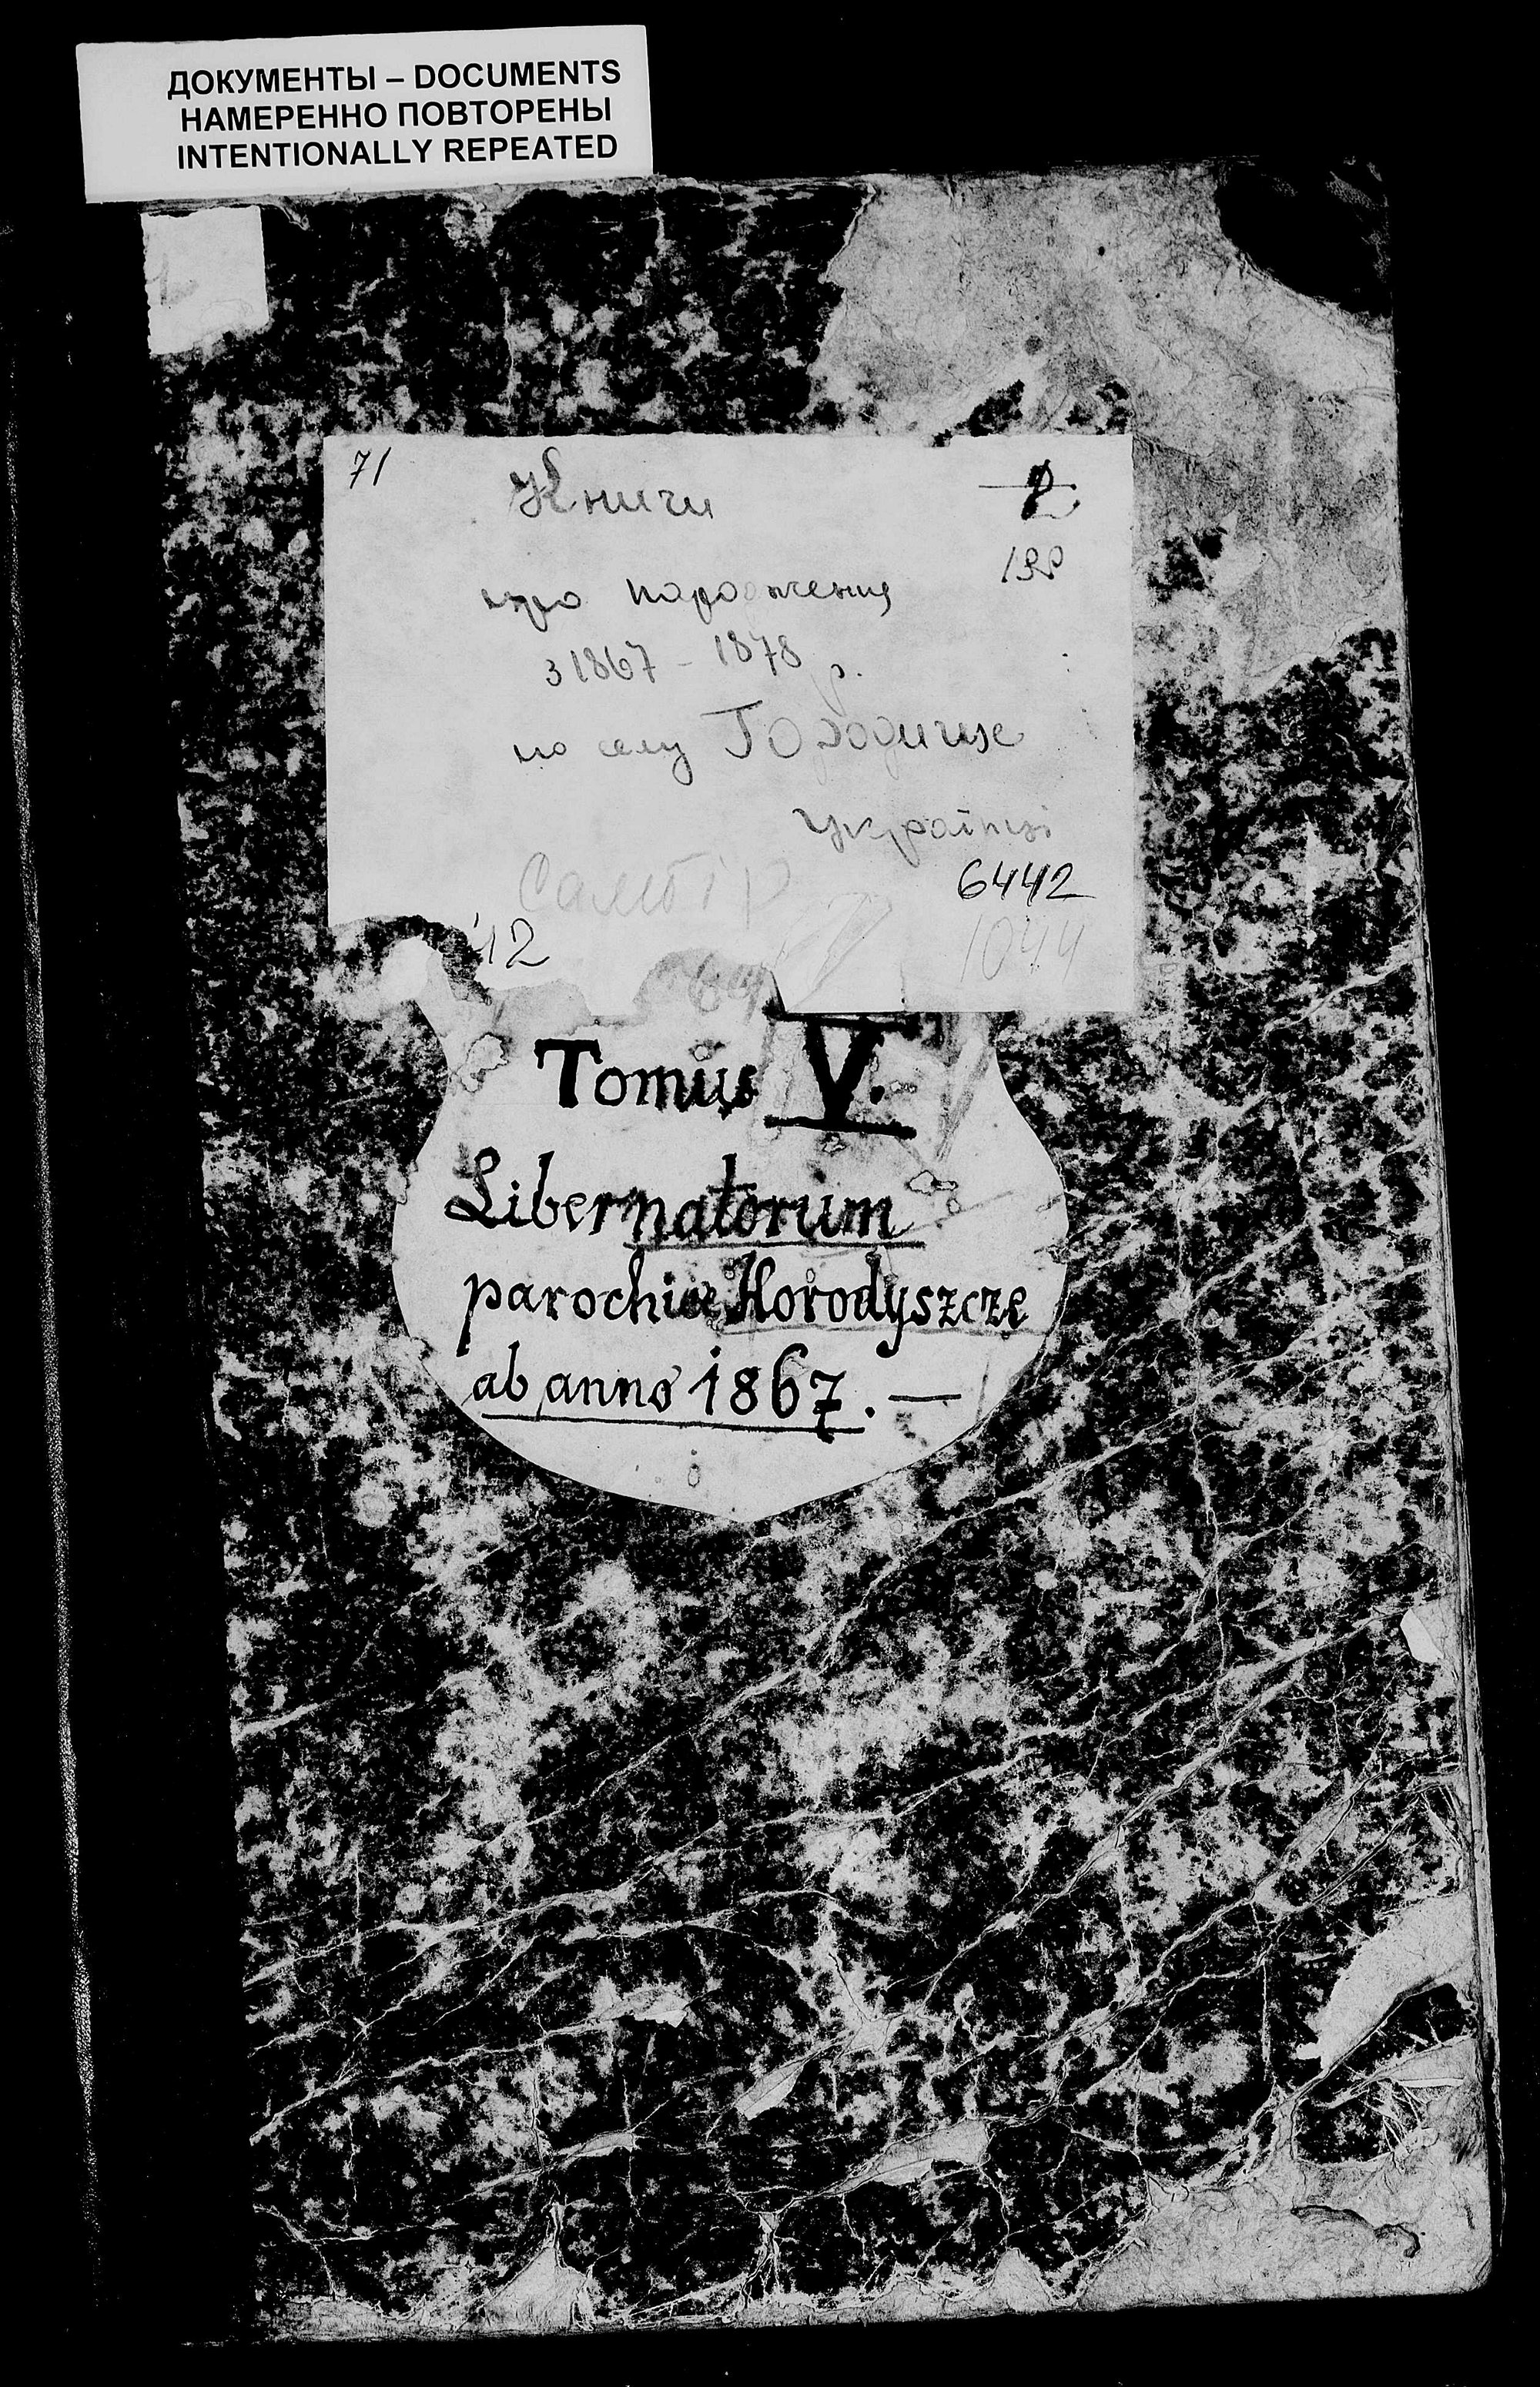 ДОКУМЕНТЫ – DOCUMENTS
НАМЕРЕННО ПОВТОРЕНЫ
INTENTIONALLY REPEATED
71
Книги
про народження
з 1867 - 1878 р.
по селу Городище
Українці
Самбір
6442
1044
42
Tomus V.
Liber natorum
parochiæ Horodyszcze
ab anno 1867. —